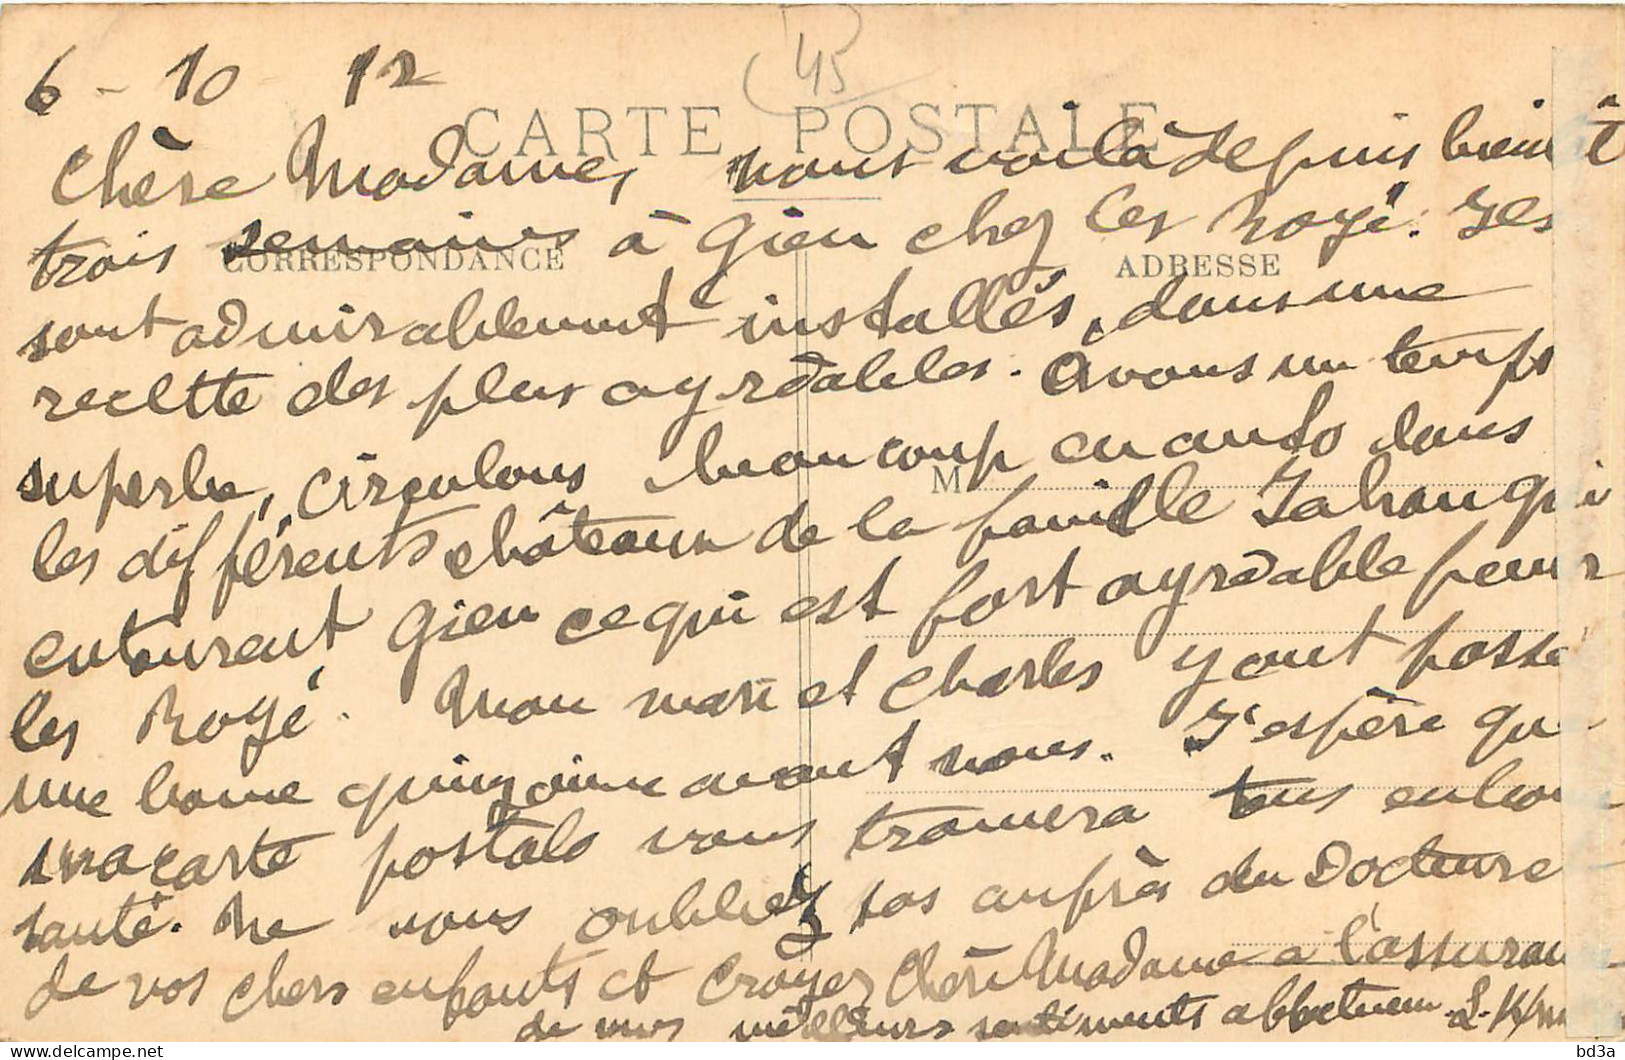 45
6 - 10 12
CARTE POSTALE
Chère Madame, nous voilà depuis bientôt
trois semaines à Gien chez les Noyé. Ils
CORRESPONDANCE
ADRESSE
sont admirablement installés, dans une
recette des plus agréables. Avons un temps
superbe, circulons beaucoup en auto dans
M
les différents châteaux de la famille Jahan qui
entourent Gien ce qui est fort agréable pour
les Noyé. Mon mari et Charles y ont passé
une bonne quinzaine avant nous. J'espère que
ma carte postale vous trouvera tous en bonne
santé. Ne nous oubliez pas auprès du Docteur
de vos chers enfants et croyez Chère Madame à l'assuran
de mes meilleurs sentiments affectueux. L.
bd3a